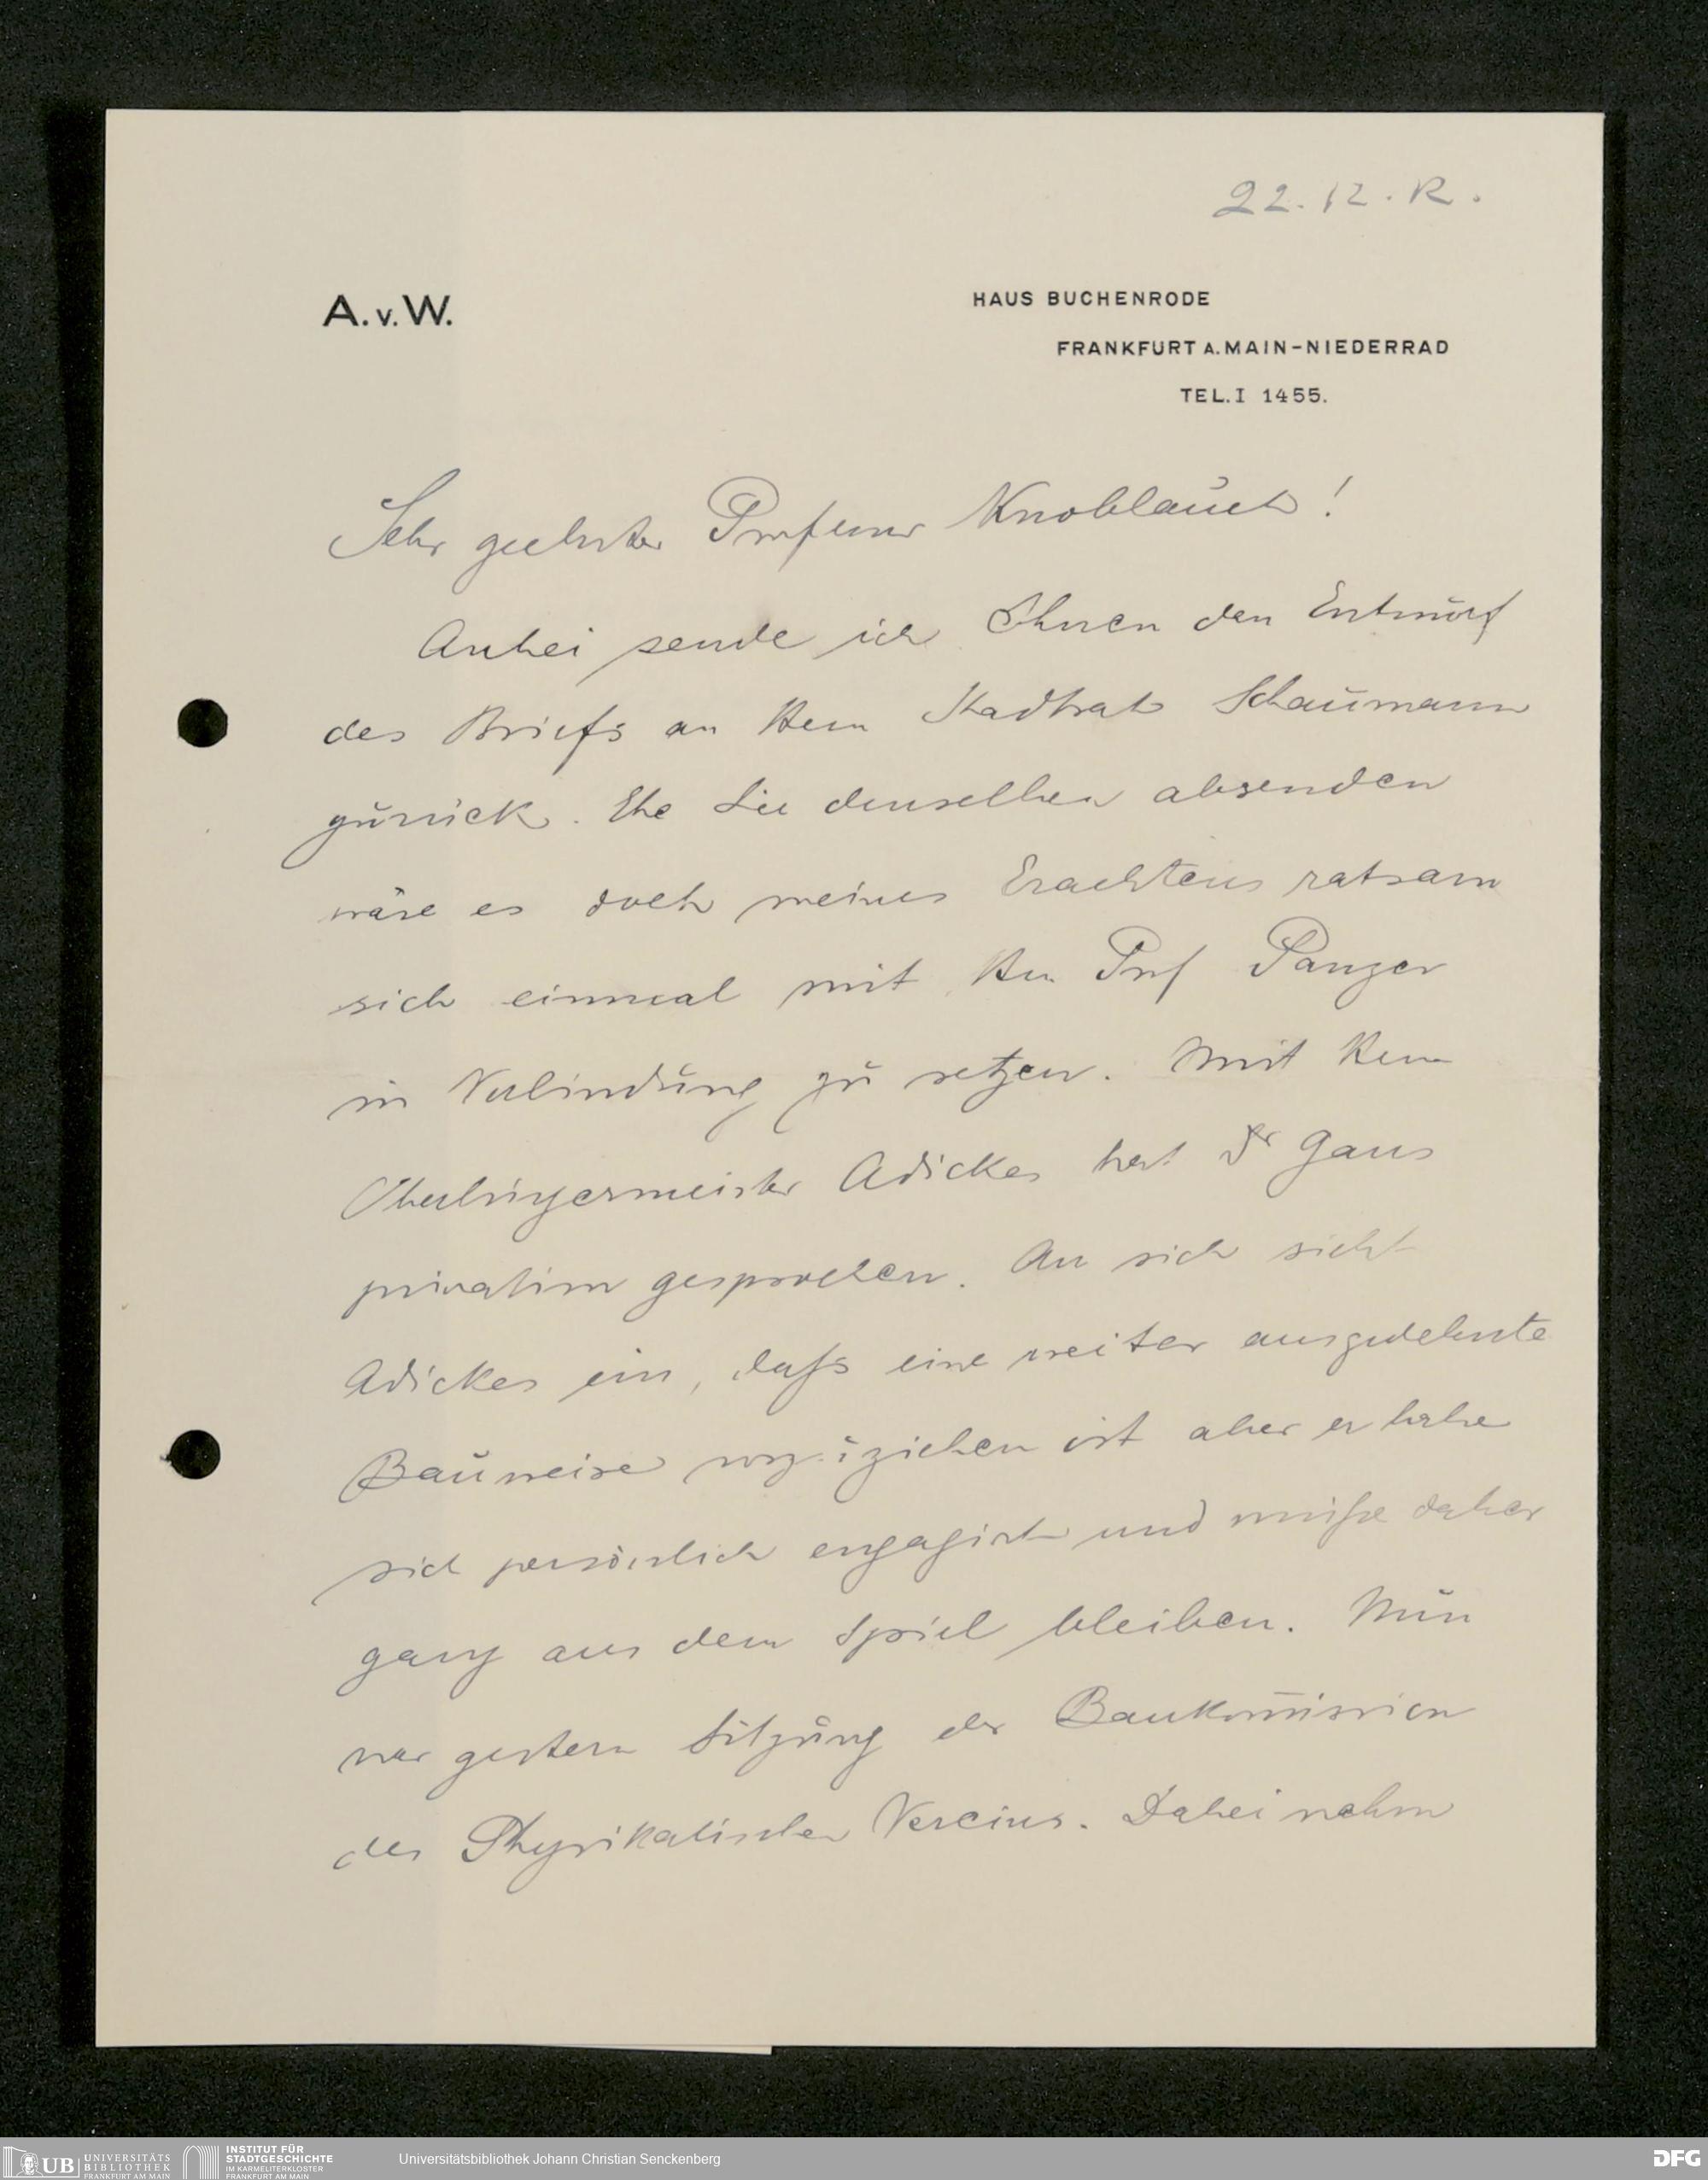 22.12.R.
A.v.W.
HAUS BUCHENRODE
FRANKFURT A.MAIN-NIEDERRAD
TEL.I 1455.
Sehr geehrter Professor Knoblauch!
Anbei sende ich Ihnen den Entwurf
des Briefs an Herrn Stadtrat Schaumann
zurück. Ehe Sie denselben absenden
wäre es doch meines Erachtens ratsam
sich einmal mit Hrn Prof Panzer
in Verbindung zu setzen. Mit Herrn
Oberbürgermeister Adickes hat Dr Gans
privatim gesprochen. An sich sieht
Adickes ein, dafs eine weiter ausgedehnte
Bauweise vorzuziehen ist aber er habe
sich persönlich engagirt und müfse daher
ganz aus dem Spiel bleiben. Nun
war gestern Sitzung der Baukom̅ission
des Physikalischen Vereins. Dabei nahm
UB UNIVERSITÄTS
BIBLIOTHEK
FRANKFURT AM MAIN
INSTITUT FÜR
STADTGESCHICHTE
IM KARMELITERKLOSTER
FRANKFURT AM MAIN
Universitätsbibliothek Johann Christian Senckenberg
DFG